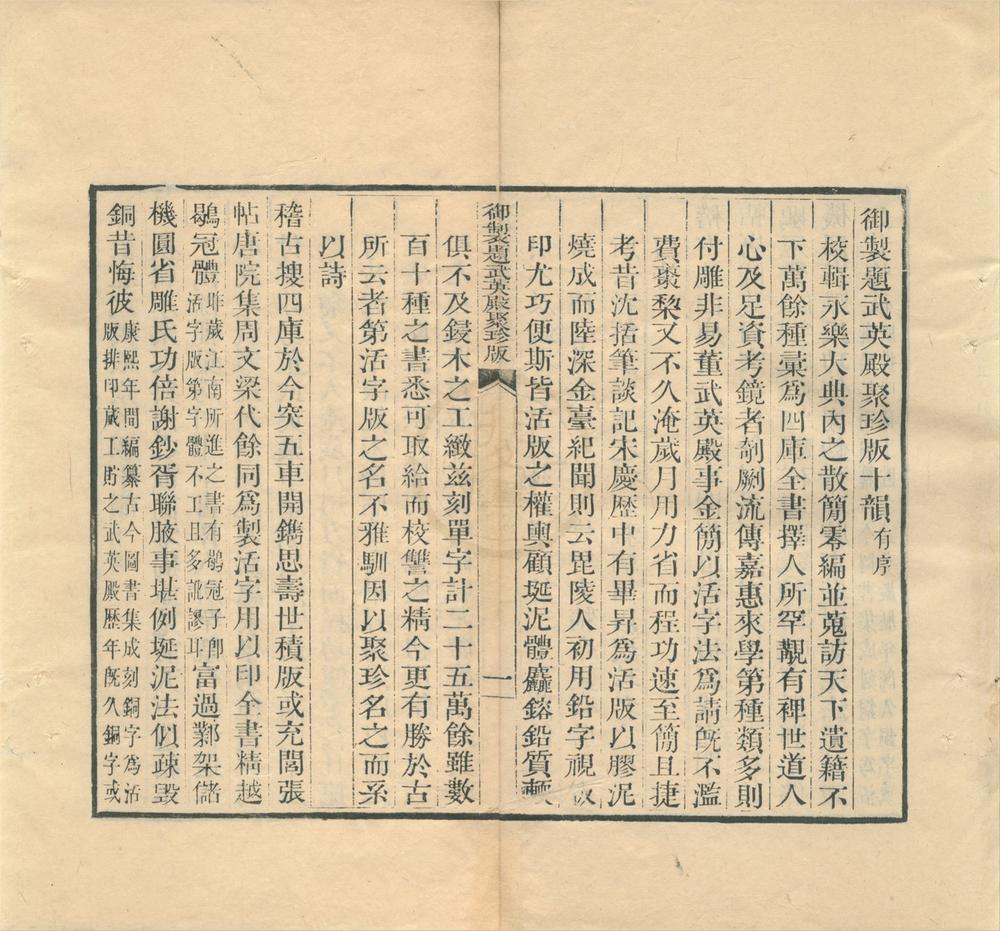 御製題武英殿聚珍版十韻有序
校輯永樂大典內之散簡零編並蒐訪天下遺籍不
下萬餘種彚爲四庫全書擇人所罕覯有裨世道人
心及足資考鏡者剞劂流傳嘉惠來學第種類多則
付雕非易董武英殿事金簡以活字法爲請旣不濫
費棗棃又不久淹歲月用力省而程功速至簡且捷
考昔沈括筆談記宋慶歷中有畢昇爲活版以膠泥
燒成而陸深金臺紀聞則云毘陵人初用鉛字視板
印尤巧便斯皆活版之權輿顧埏泥體麤鎔鉛質輭
御製題武英殿聚珍版
一
俱不及鋟木之工緻茲刻單字計二十五萬餘雖數
百十種之書悉可取給而校讐之精今更有勝於古
所云者第活字版之名不雅馴因以聚珍名之而系
以詩
稽古搜四庫於今突五車開鐫思壽世積版或充閭張
帖唐院集周文梁代餘同爲製活字用以印全書精越
鶡冠體昨歲江南所進之書有鶡冠子卽
活字版第字體不工且多訛謬耳富過鄴架儲
機圓省雕氏功倍謝鈔胥聯腋事堪例埏泥法似疎毀
銅昔悔彼康熙年間編纂古今圖書集成刻銅字爲活
版排印蕆工貯之武英殿歷年旣久銅字或